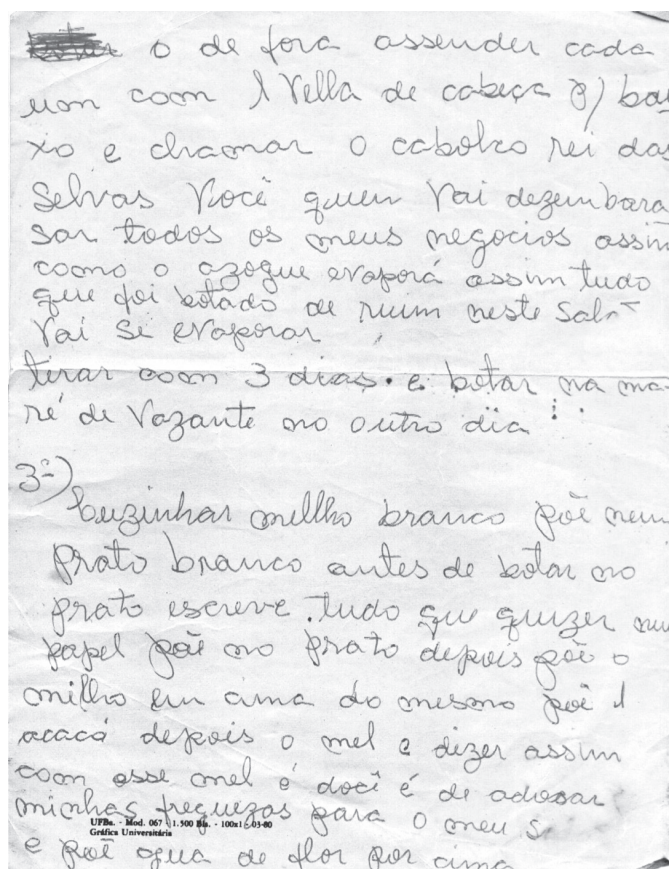 o de fora assender cada
um com 1 Vella de cabeça p/ bai
xo e chamar o cabolco rei das
Selvas Você quem Vai dezembara
sar todos os meus negocios assim
como o azogue evaporá assim tudo
que foi botado de ruim neste
Vai Se evaporar
tirar com 3 dias. e botar na ma
ré de Vazante no outro dia
3º)
Cuzinhar millho branco põe num
prato branco antes de botar no
prato escreve tudo que quizer num
papel põe no prato depois põe o
milho em cima do mesmo põe 1
acaçá depois o mel e dizer assim
com esse mel é docê é de adosar
minhas freguezas para o meu
UFBa. - Mod. 067 - 1.500 Bls. - 100x1 - 03-80
Gráfica Universitária
e põe agua de flor por cima